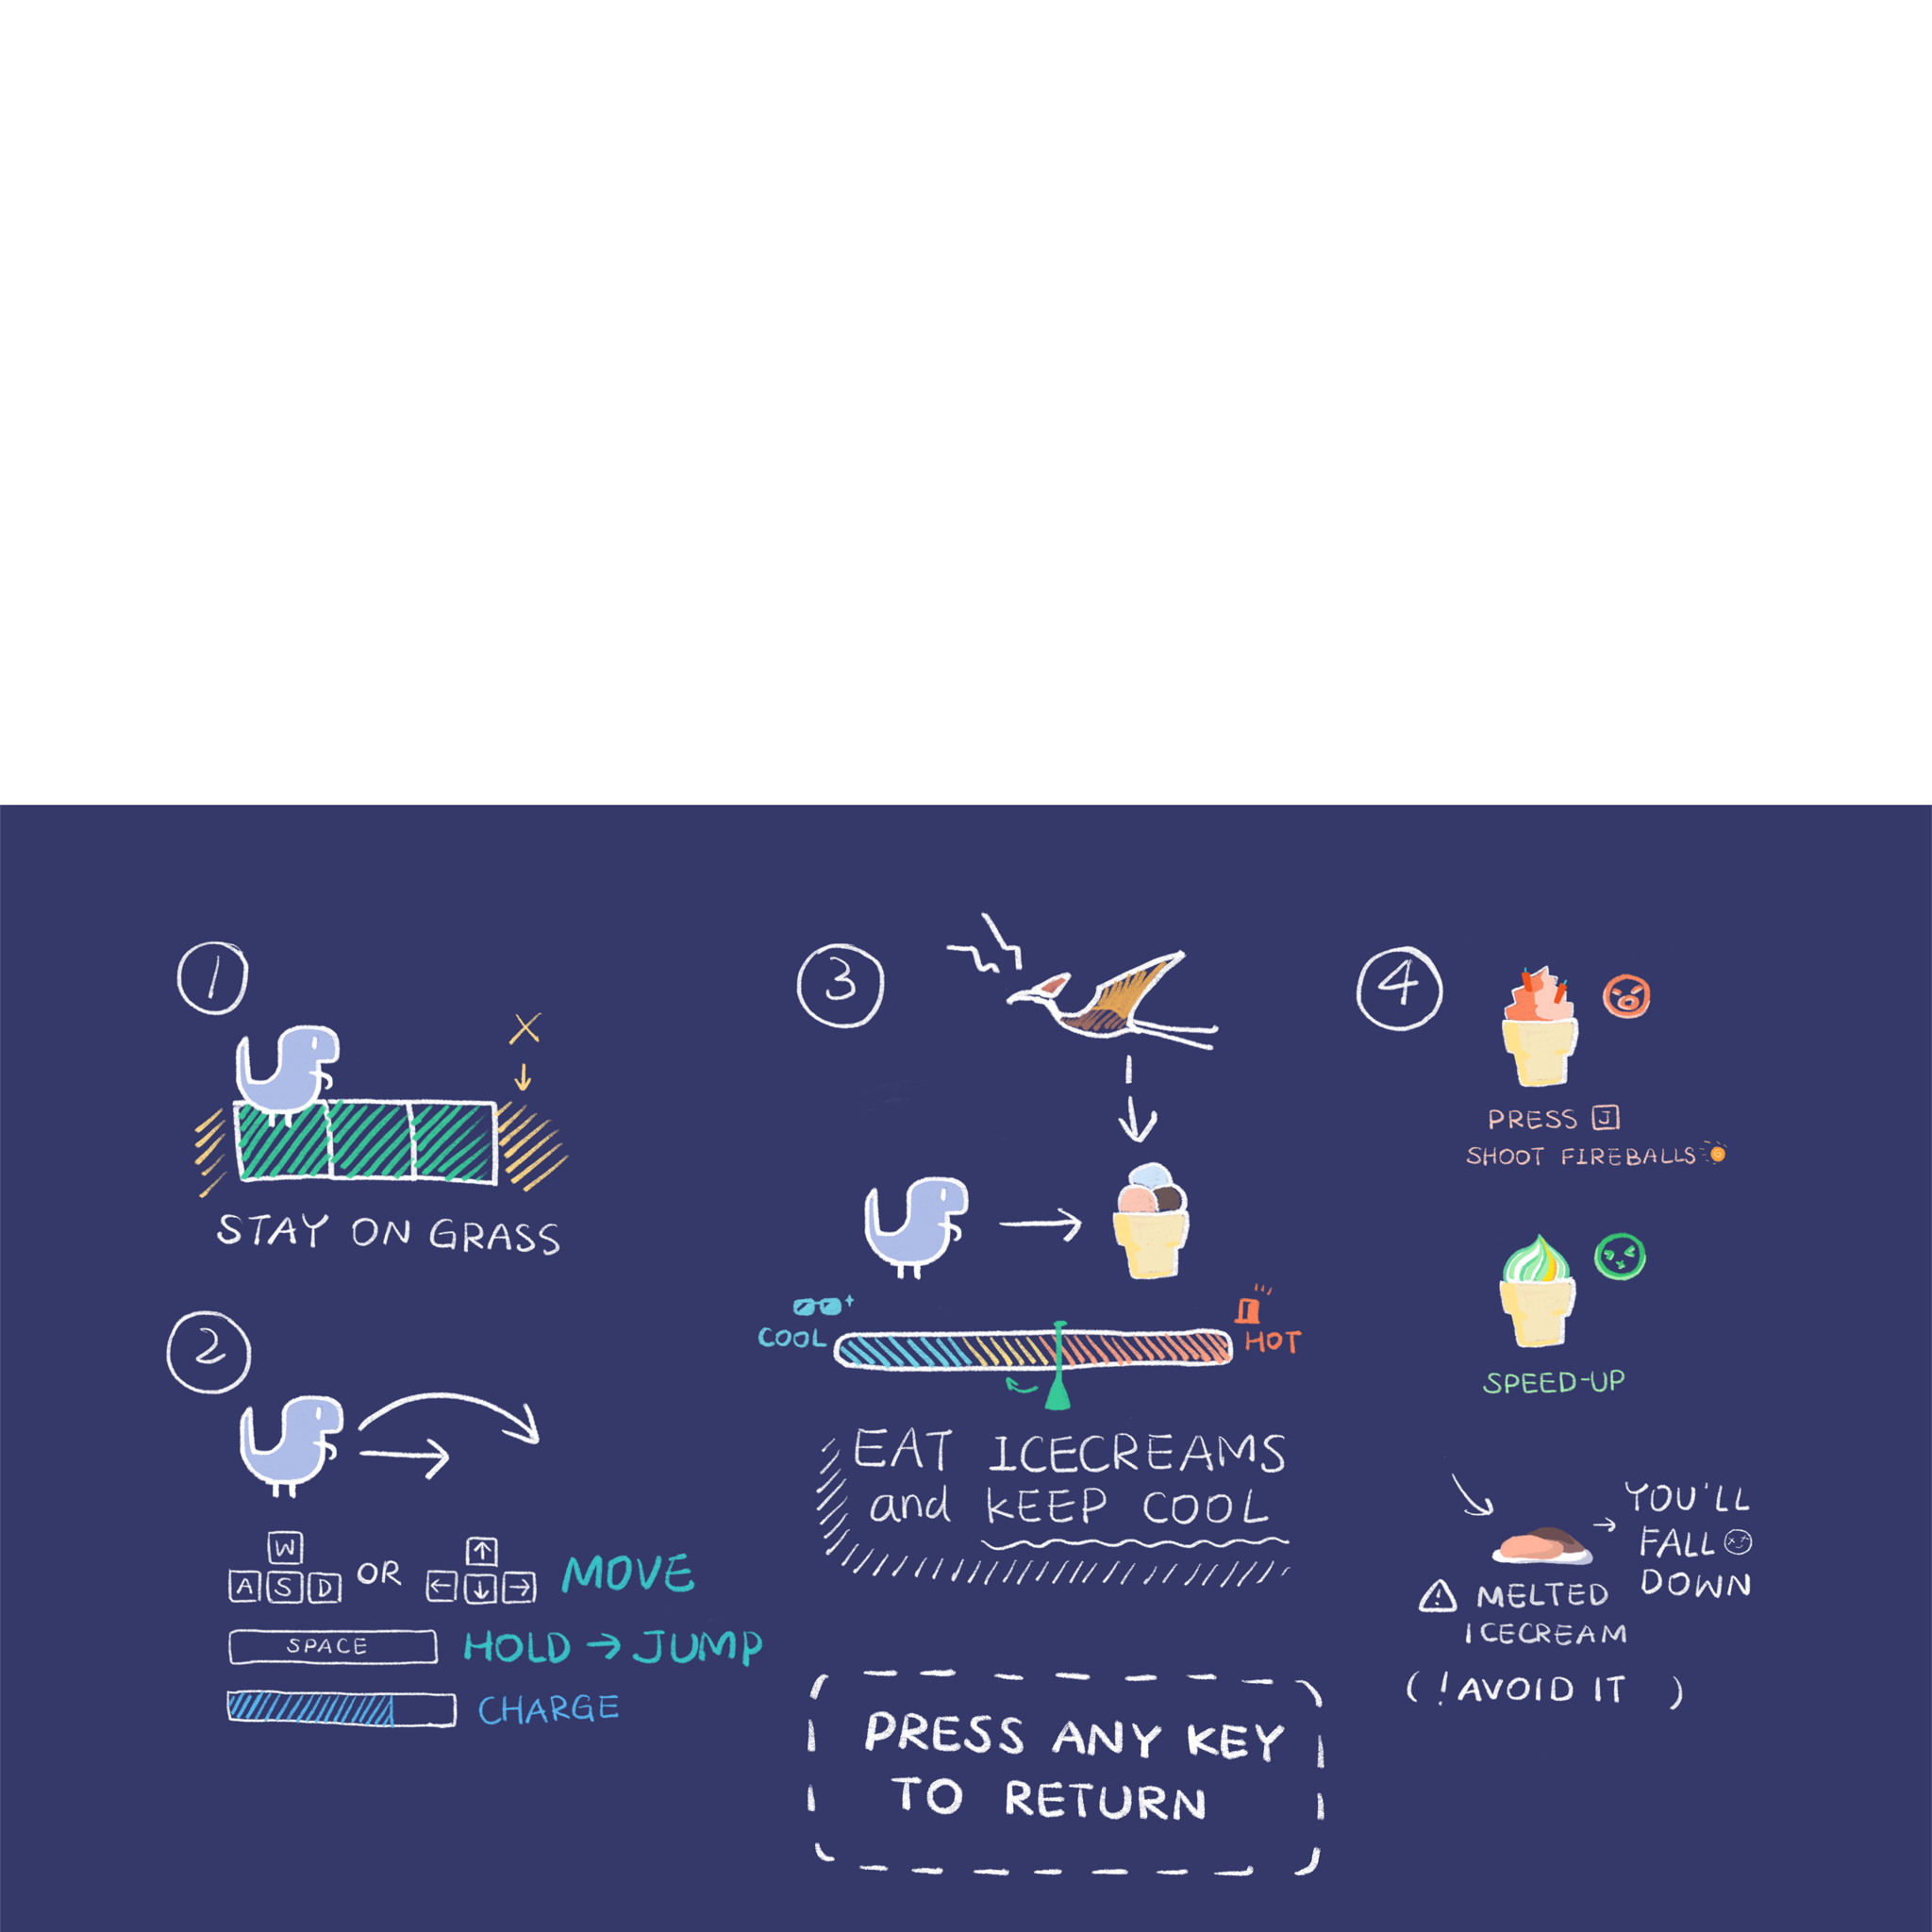 1
STAY ON GRASS
2
W
A S D OR ← ↑ ↓ → MOVE
SPACE HOLD → JUMP
CHARGE
3
COOL HOT
EAT ICECREAMS
and KEEP COOL
PRESS ANY KEY
TO RETURN
4
PRESS J
SHOOT FIREBALLS
SPEED-UP
YOU'LL
FALL
DOWN
MELTED
ICECREAM
(!AVOID IT )